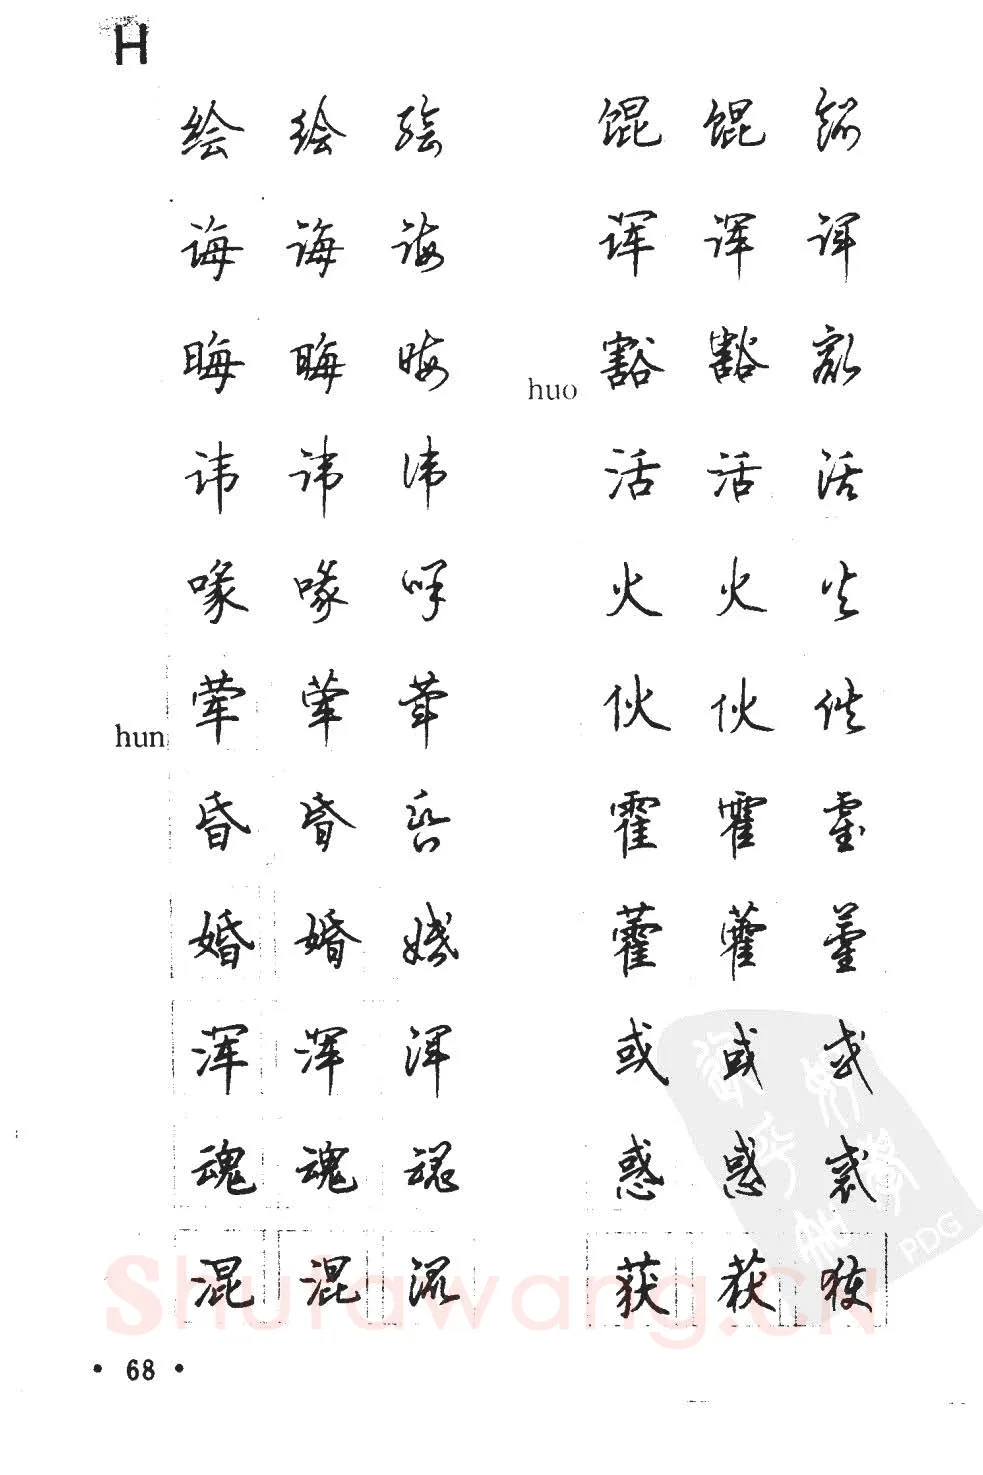 H
绘 绘 绘
诲 诲 诲
晦 晦 晦
讳 讳 讳
喙 喙 喙
hun 荤 荤 荤
昏 昏 昏
婚 婚 婚
浑 浑 浑
魂 魂 魂
混 混 混
馄 馄 馄
诨 诨 诨
huo 豁 豁 豁
活 活 活
火 火 火
伙 伙 伙
霍 霍 霍
藿 藿 藿
或 或 或
惑 惑 惑
获 获 获
• 68 •
Shufawang.CN
PDG